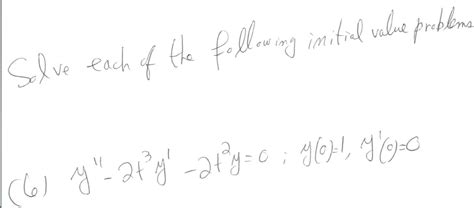 Solve each of the following initial value problems
(6) y'' - 2t³y' - 2t²y = 0 ; y(0)=1, y'(0)=0